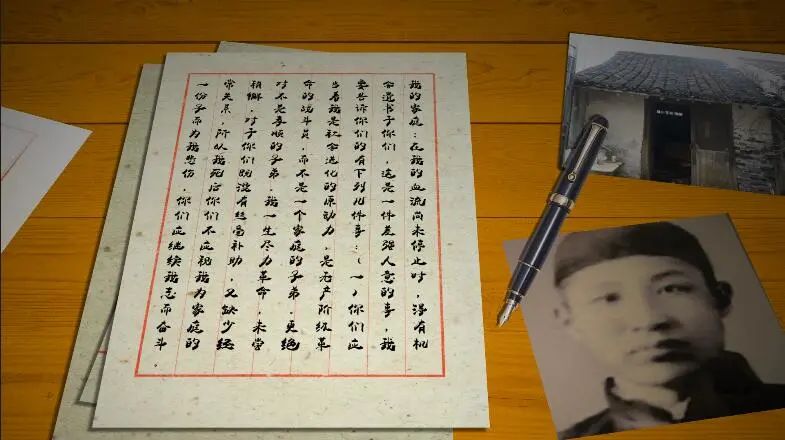 我的家庭:在我的血流尚未停止时,得有机
会遗书于你们,这是一件差强人意的事,我
要告诉你们的有下列几件事:(一)你们应
当看我是社会进化的原动力,是无产阶级革
命的战斗员,而不是一个家庭的子弟.更绝
对不是孝顺的子弟.我一生尽力革命,未尝
稍懈.对于你们既没有丝毫补助,又缺少经
常关系,所以我死后你们不应视我为家庭的
一份子而为我悲伤,你们应继续我志而奋斗.